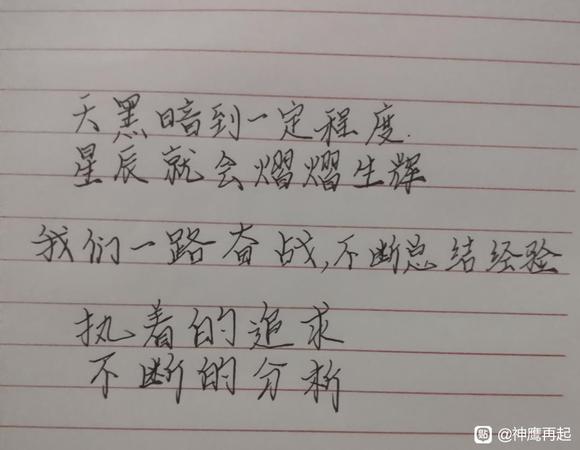 天黑暗到一定程度.
星辰就会熠熠生辉
我们一路奋战,不断总结经验
执着的追求
不断的分析
贴 @神鹰再起